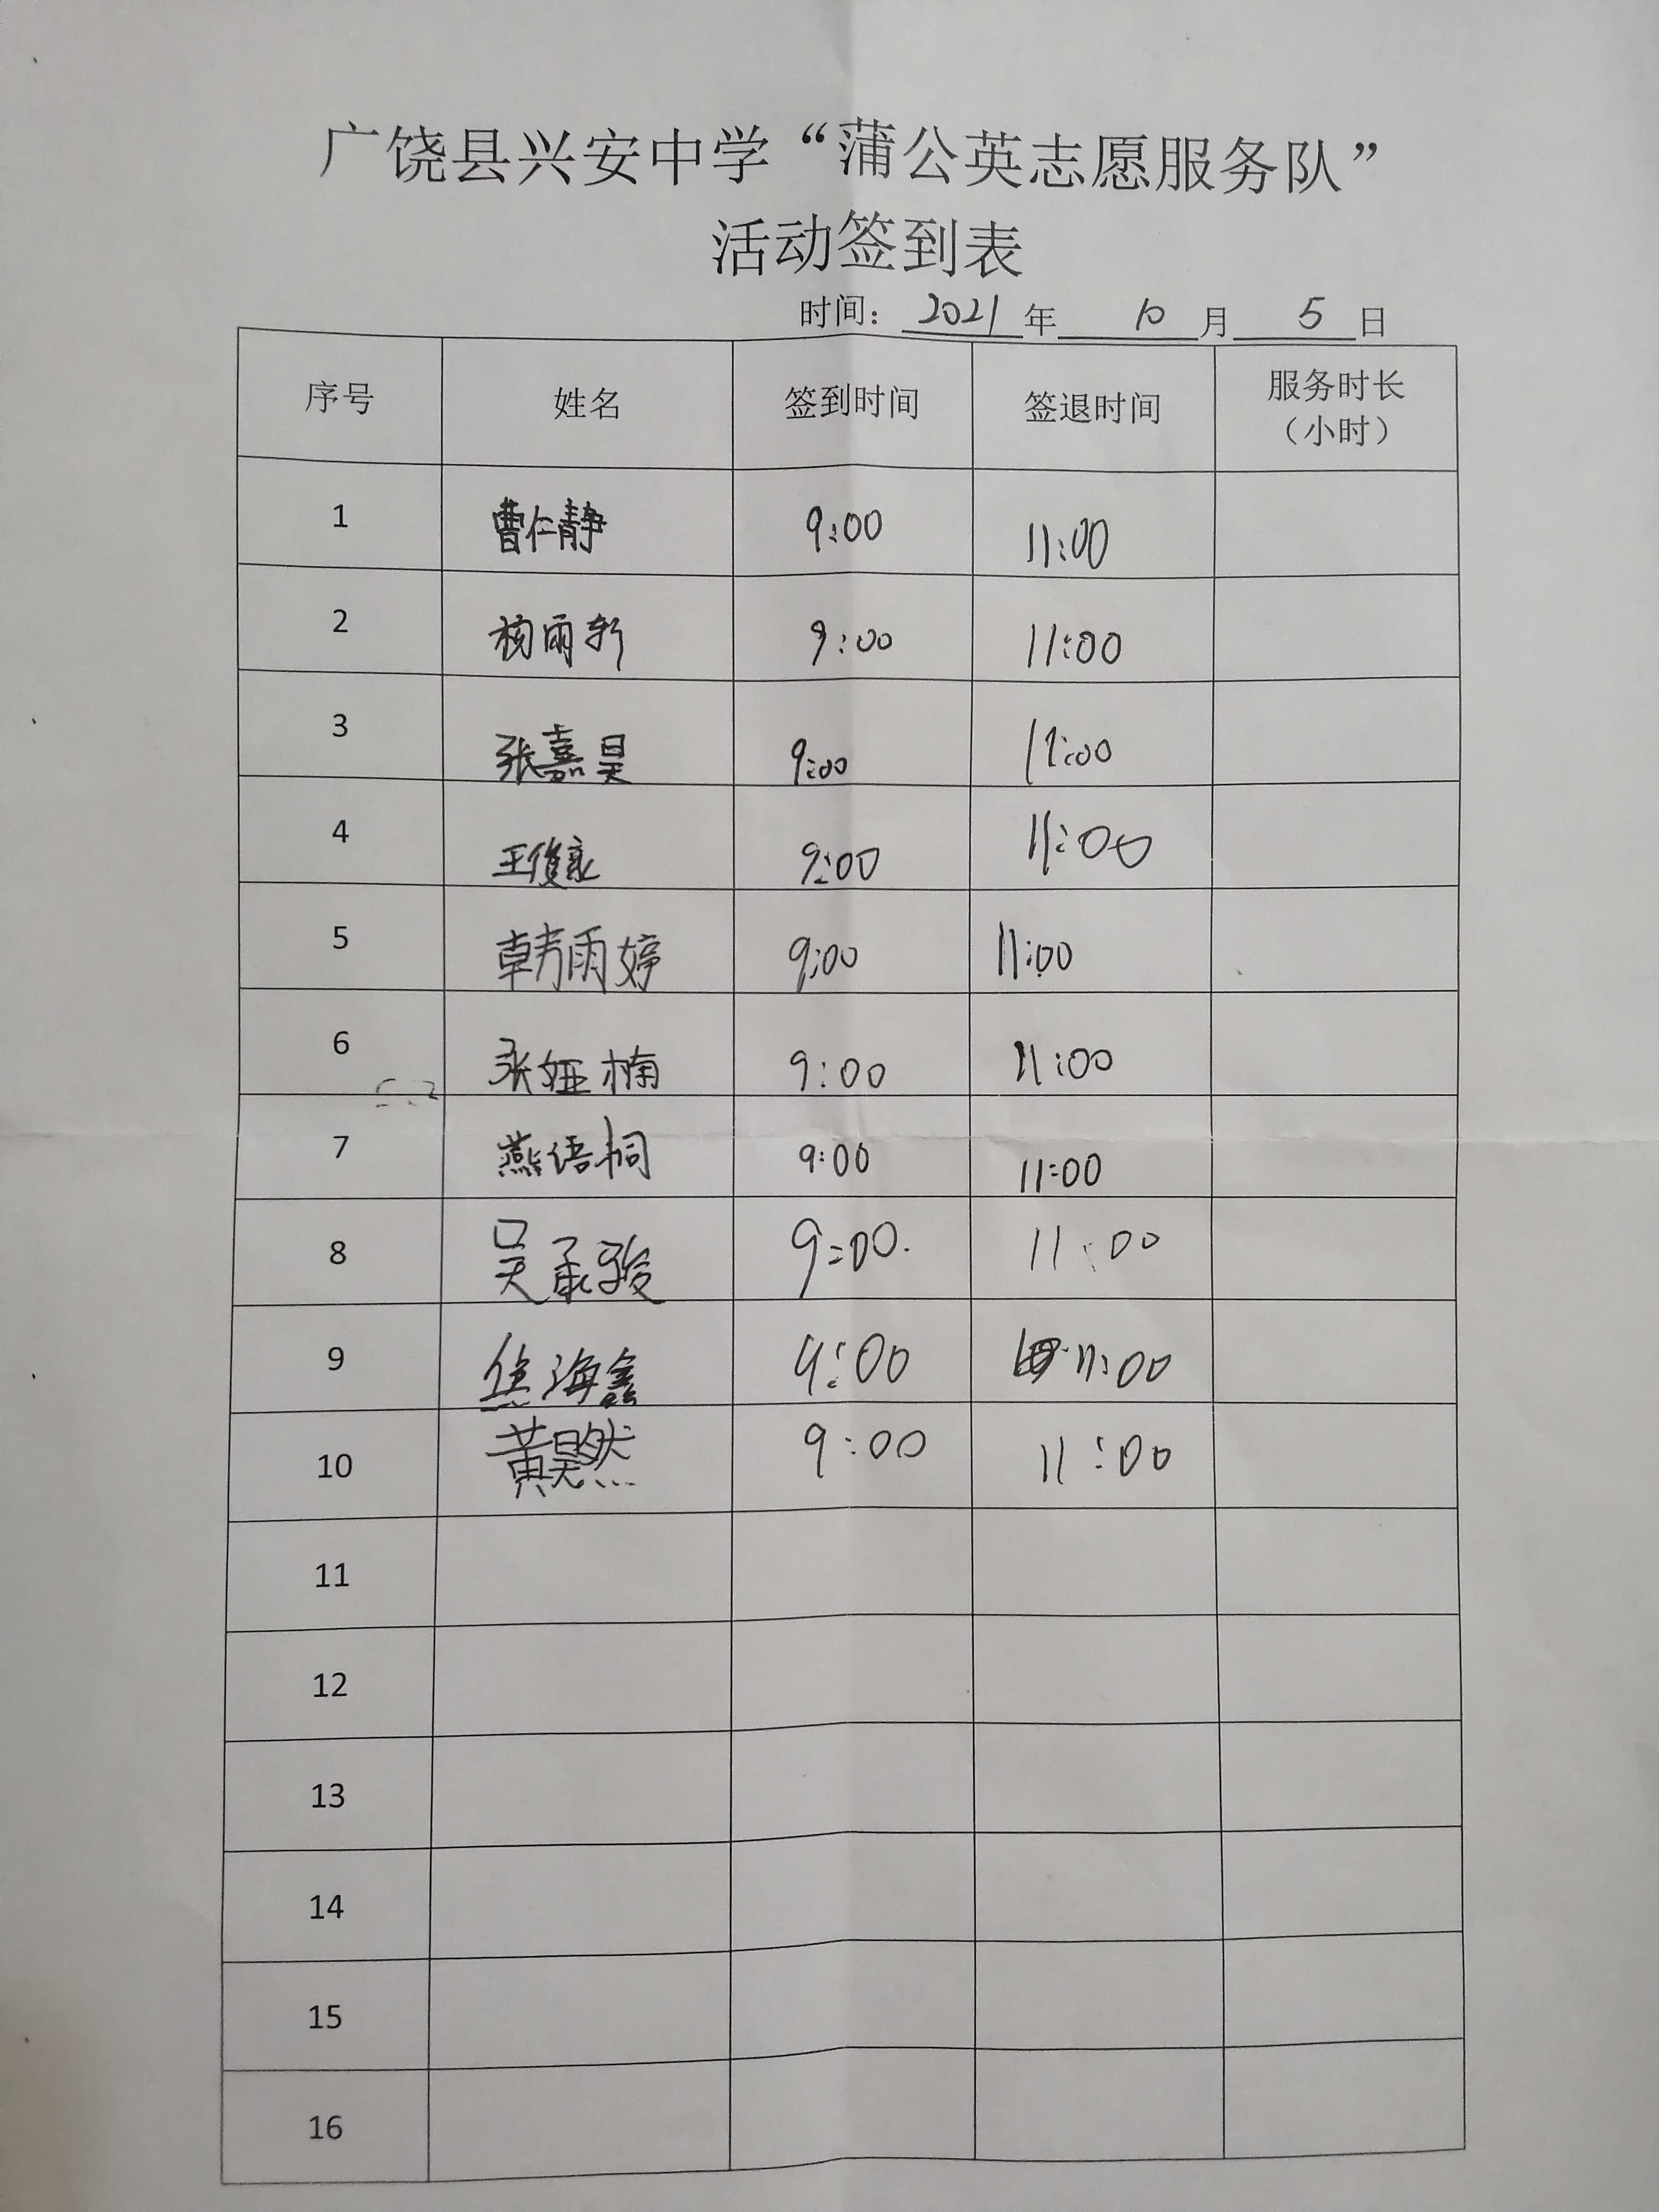 广饶县兴安中学“蒲公英志愿服务队”
活动签到表
时间：2021年10月5日
序号 姓名 签到时间 签退时间 服务时长（小时）
1 曹仁静 9:00 11:00
2 杨雨轩 9:00 11:00
3 张嘉昊 9:00 11:00
4 王俊豪 9:00 11:00
5 韩雨婷 9:00 11:00
6 张娅楠 9:00 11:00
7 燕语桐 9:00 11:00
8 吴承骏 9:00 11:00
9 焦海鑫 9:00 11:00
10 黄昊然 9:00 11:00
11
12
13
14
15
16